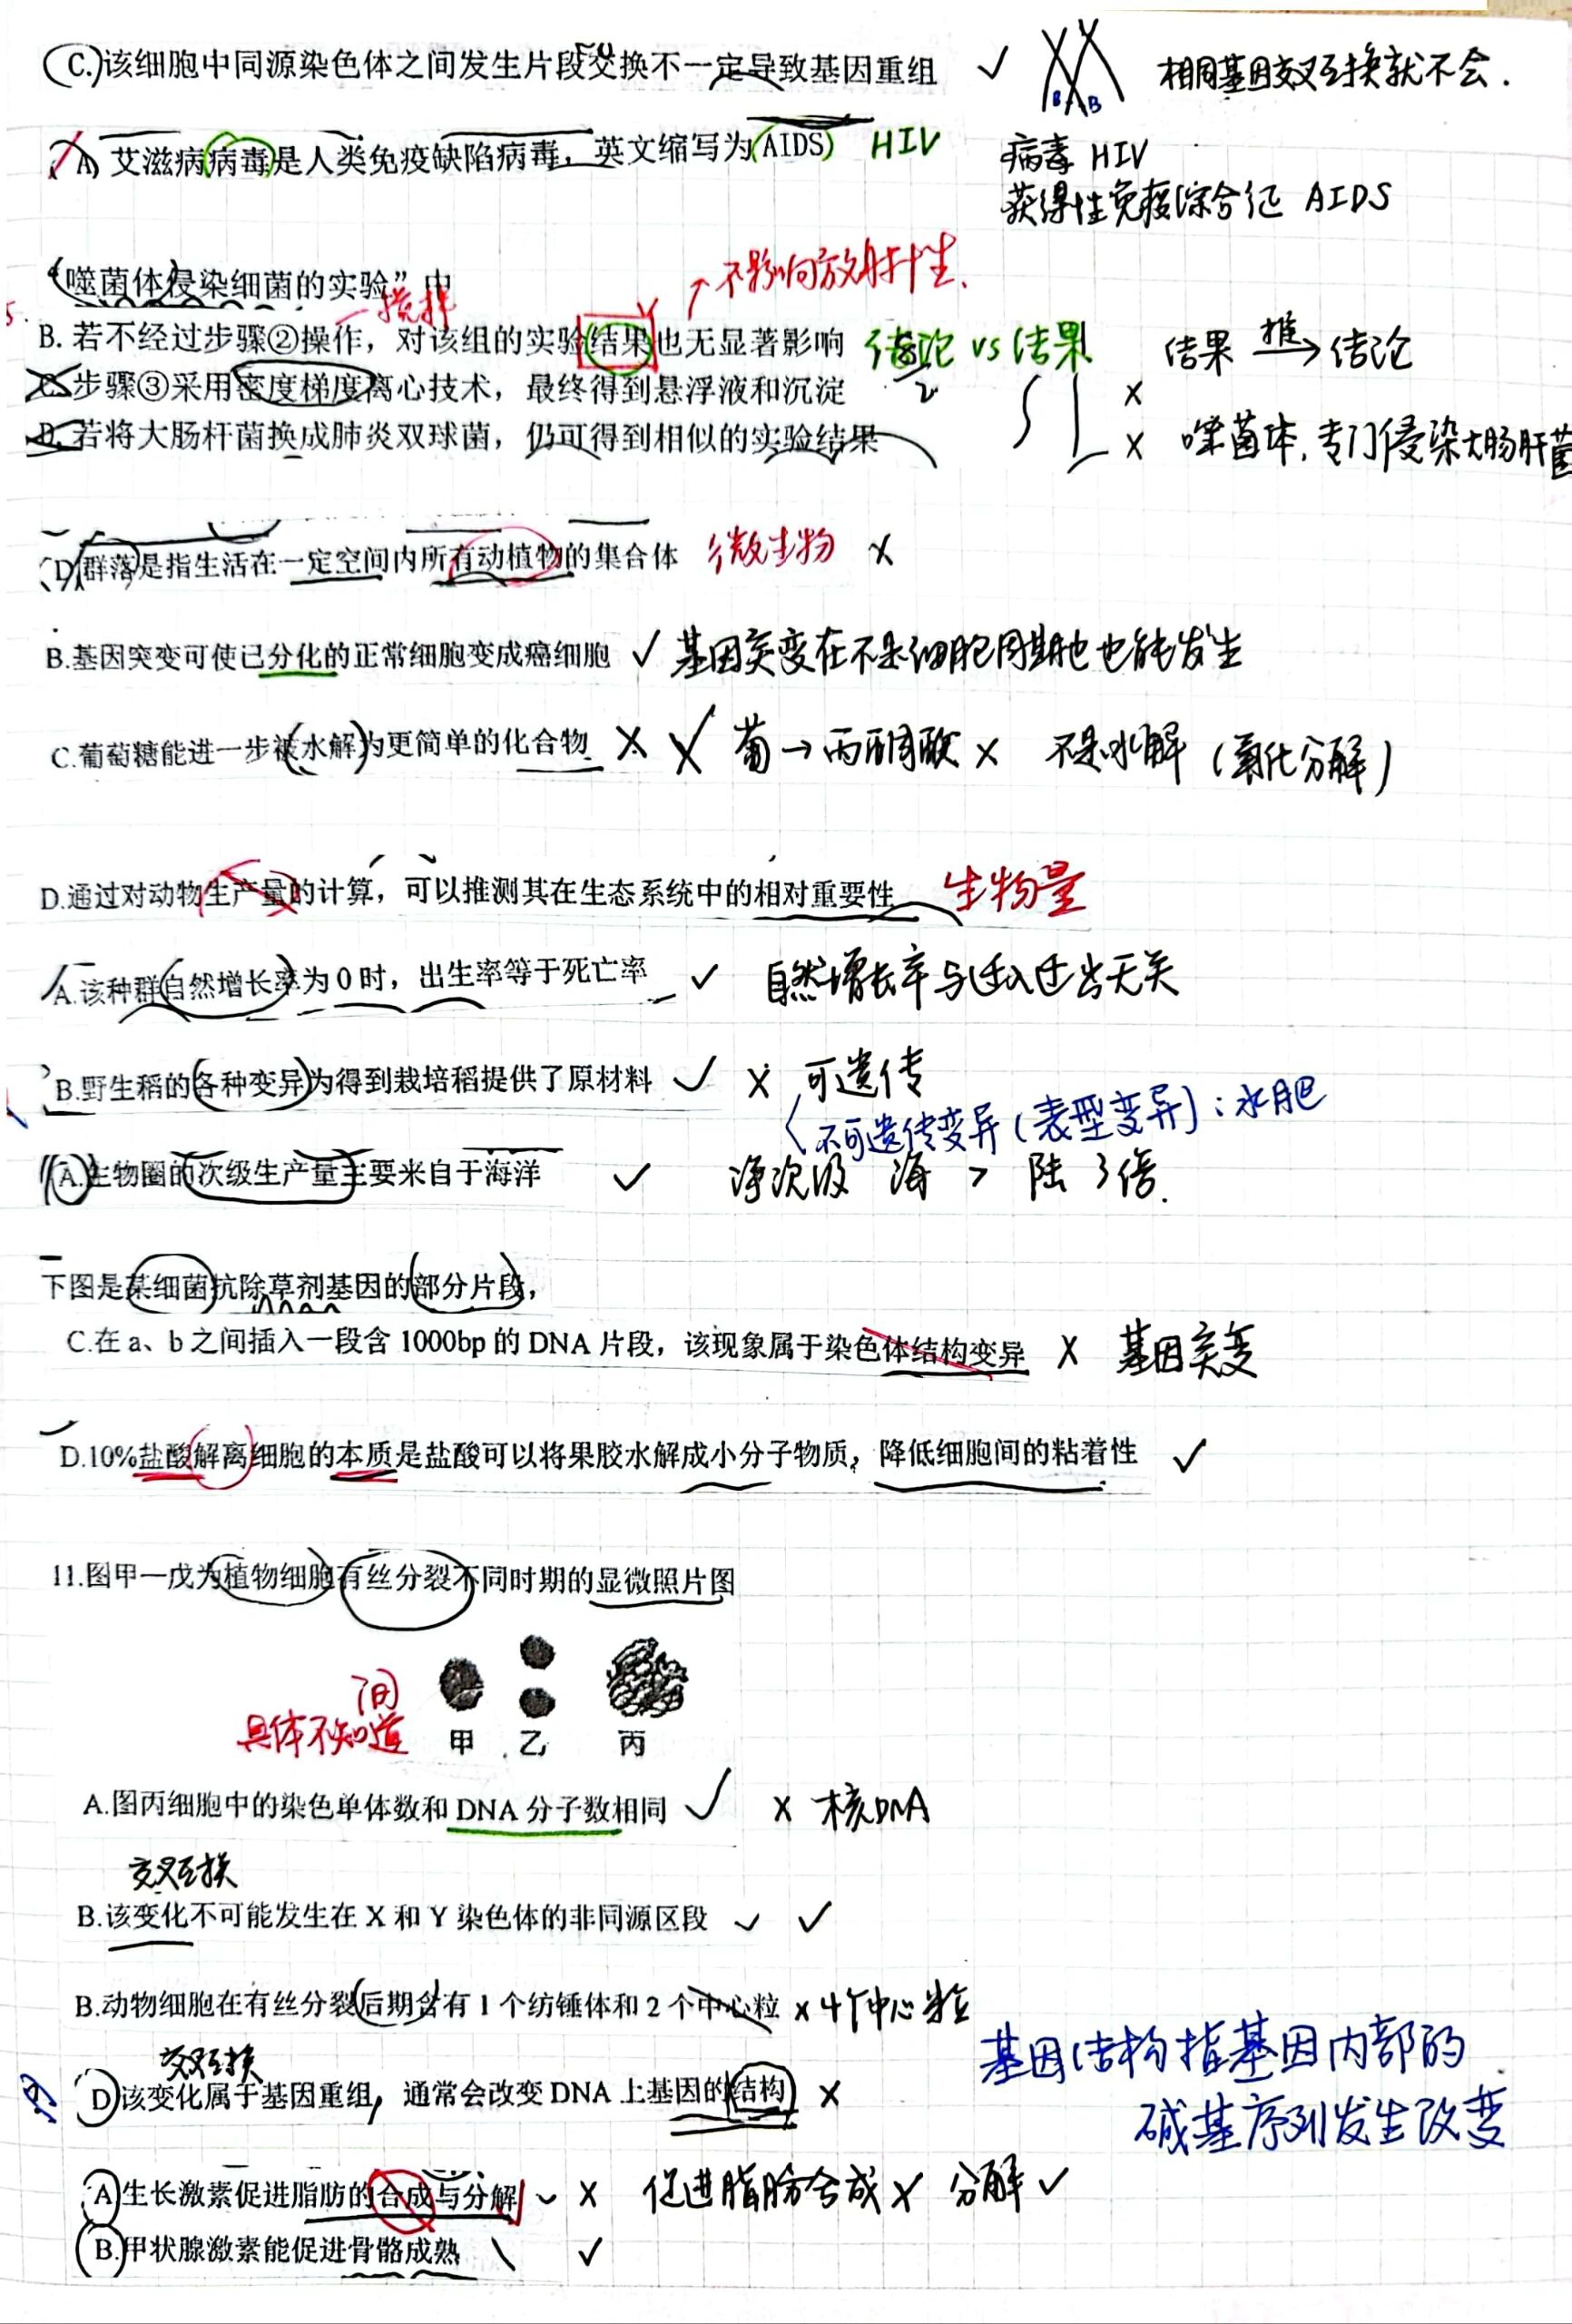 C.该细胞中同源染色体之间发生片段交换不一定导致基因重组 ✓ 相同基因交叉互换就不会.
B B
A 艾滋病病毒是人类免疫缺陷病毒，英文缩写为(AIDS) HIV 病毒 HIV
获得性免疫综合征 AIDS
“噬菌体侵染细菌的实验”中 ↑不影响放射性.
搅拌
B. 若不经过步骤②操作，对该组的实验结果也无显著影响 结论 vs 结果 结果 推→ 结论
C. 步骤③采用密度梯度离心技术，最终得到悬浮液和沉淀 ×
D. 若将大肠杆菌换成肺炎双球菌，仍可得到相似的实验结果 × 噬菌体,专门侵染大肠肝菌
D 群落是指生活在一定空间内所有动植物的集合体 微生物 ×
B.基因突变可使已分化的正常细胞变成癌细胞 ✓ 基因突变在不是细胞周期也也能发生
C.葡萄糖能进一步被水解为更简单的化合物 × × 葡→丙酮酸 × 不是水解 (氧化分解)
D.通过对动物生产量的计算，可以推测其在生态系统中的相对重要性 生物量
A.该种群自然增长率为 0 时，出生率等于死亡率 ✓ 自然增长率与迁入迁出无关
B.野生稻的各种变异为得到栽培稻提供了原材料 ✓ × 可遗传
不可遗传变异(表型变异):水肥
A.生物圈的次级生产量主要来自于海洋 ✓ 净次级 海 > 陆 3倍.
下图是某细菌抗除草剂基因的部分片段，
C.在 a、b 之间插入一段含 1000bp 的 DNA 片段，该现象属于染色体结构变异 × 基因突变
D.10%盐酸解离细胞的本质是盐酸可以将果胶水解成小分子物质，降低细胞间的粘着性 ✓
11.图甲一戊为植物细胞有丝分裂不同时期的显微照片图
间
具体不知道 甲 乙 丙
A.图丙细胞中的染色单体数和 DNA 分子数相同 ✓ × 核DNA
交叉互换
B.该变化不可能发生在 X 和 Y 染色体的非同源区段 ✓ ✓
B.动物细胞在有丝分裂后期含有 1 个纺锤体和 2 个中心粒 × 4个中心粒
交叉互换
D 该变化属于基因重组，通常会改变 DNA 上基因的结构 ×
基因结构指基因内部的
碱基序列发生改变
A 生长激素促进脂肪的合成与分解 × 促进脂肪合成 × 分解 ✓
B.甲状腺激素能促进骨骼成熟 ✓